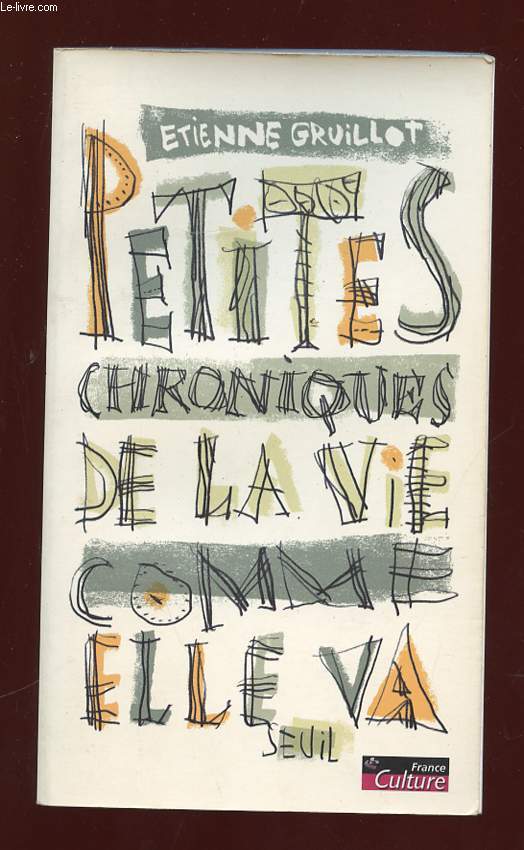 Le-livre.com
ETiENNE GRUiLLOT
PETiTES
CHRONiQUES
DE LA ViE
COMME
ELLE VA
SEUiL
France
Culture